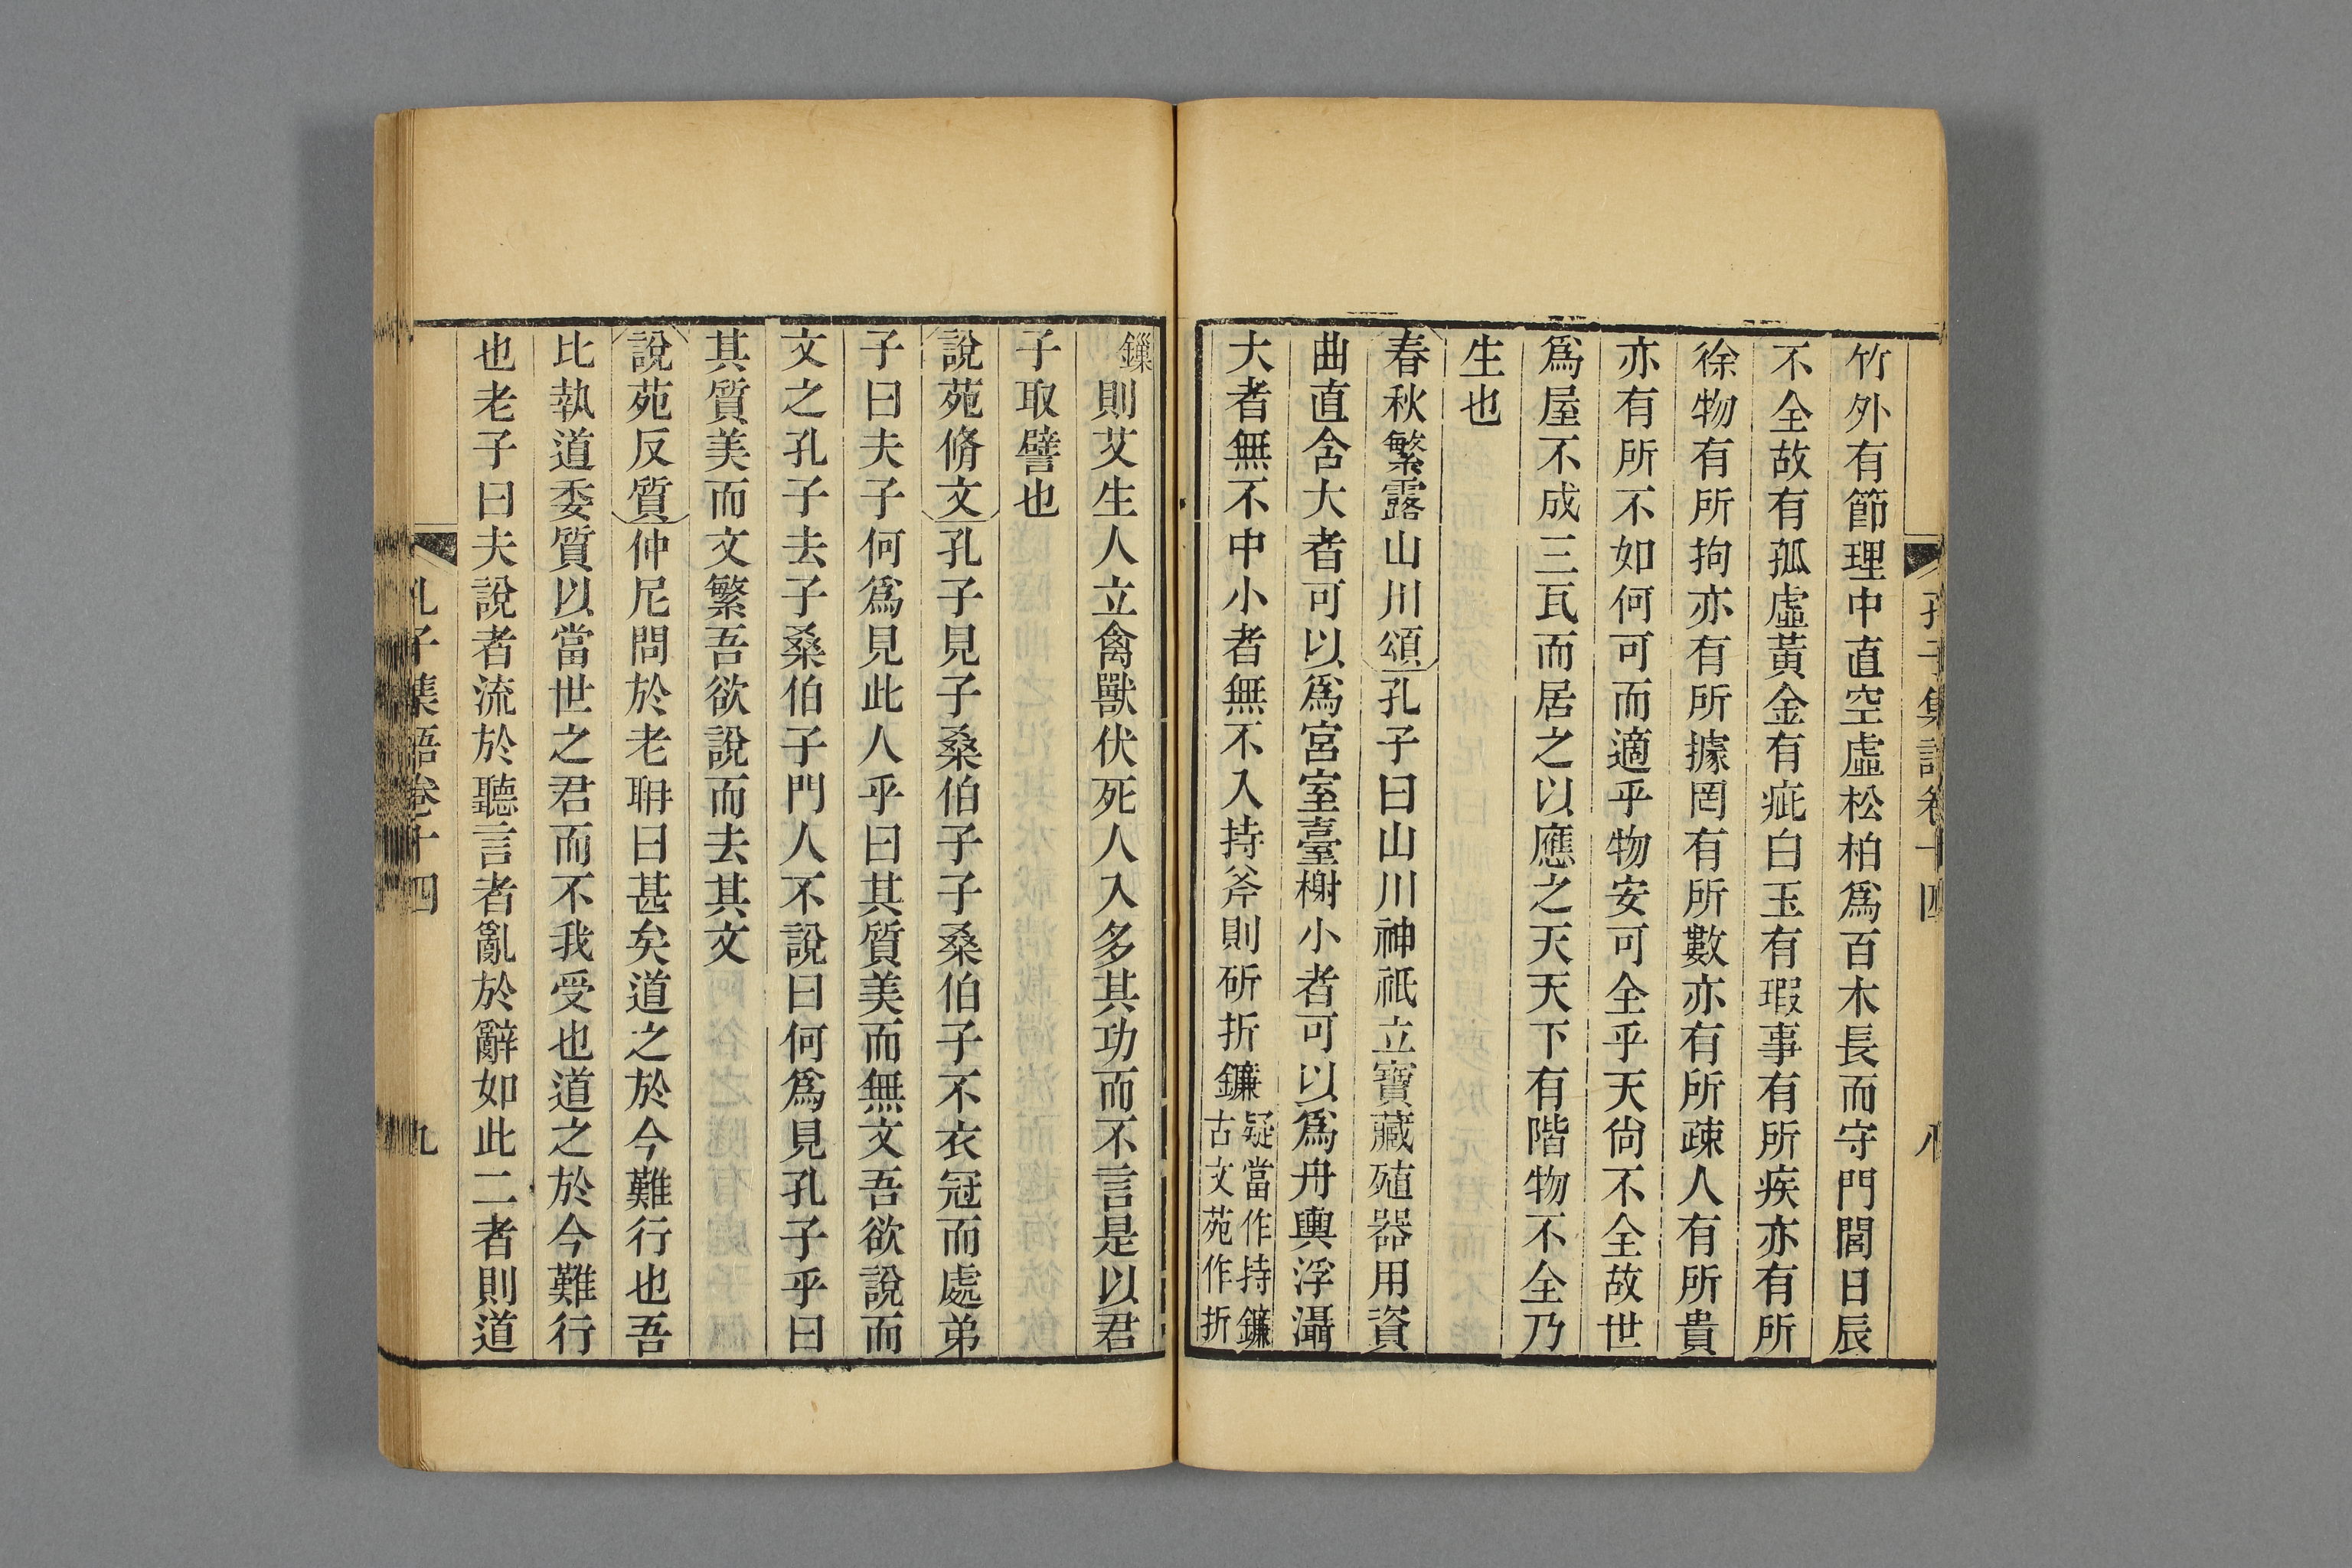 孔子集語卷十四 八
竹外有節理中直空虛松柏爲百木長而守門閭日辰
不全故有孤虛黃金有疵白玉有瑕事有所疾亦有所
徐物有所拘亦有所據罔有所數亦有所疎人有所貴
亦有所不如何可而適乎物安可全乎天尙不全故世
爲屋不成三瓦而居之以應之天天下有階物不全乃
生也
春秋繁露山川頌孔子曰山川神祇立寶藏殖器用資
曲直含大者可以爲宮室臺榭小者可以爲舟輿浮灄
大者無不中小者無不入持斧則斫折鐮疑當作持鐮古文苑作折
鏁則艾生人立禽獸伏死人入多其功而不言是以君
子取譬也
說苑脩文孔子見子桑伯子子桑伯子不衣冠而處弟
子曰夫子何爲見此人乎曰其質美而無文吾欲說而
文之孔子去子桑伯子門人不說曰何爲見孔子乎曰
其質美而文繁吾欲說而去其文
說苑反質仲尼問於老聃曰甚矣道之於今難行也吾
比執道委質以當世之君而不我受也道之於今難行
也老子曰夫說者流於聽言者亂於辭如此二者則道
孔子集語卷十四 九